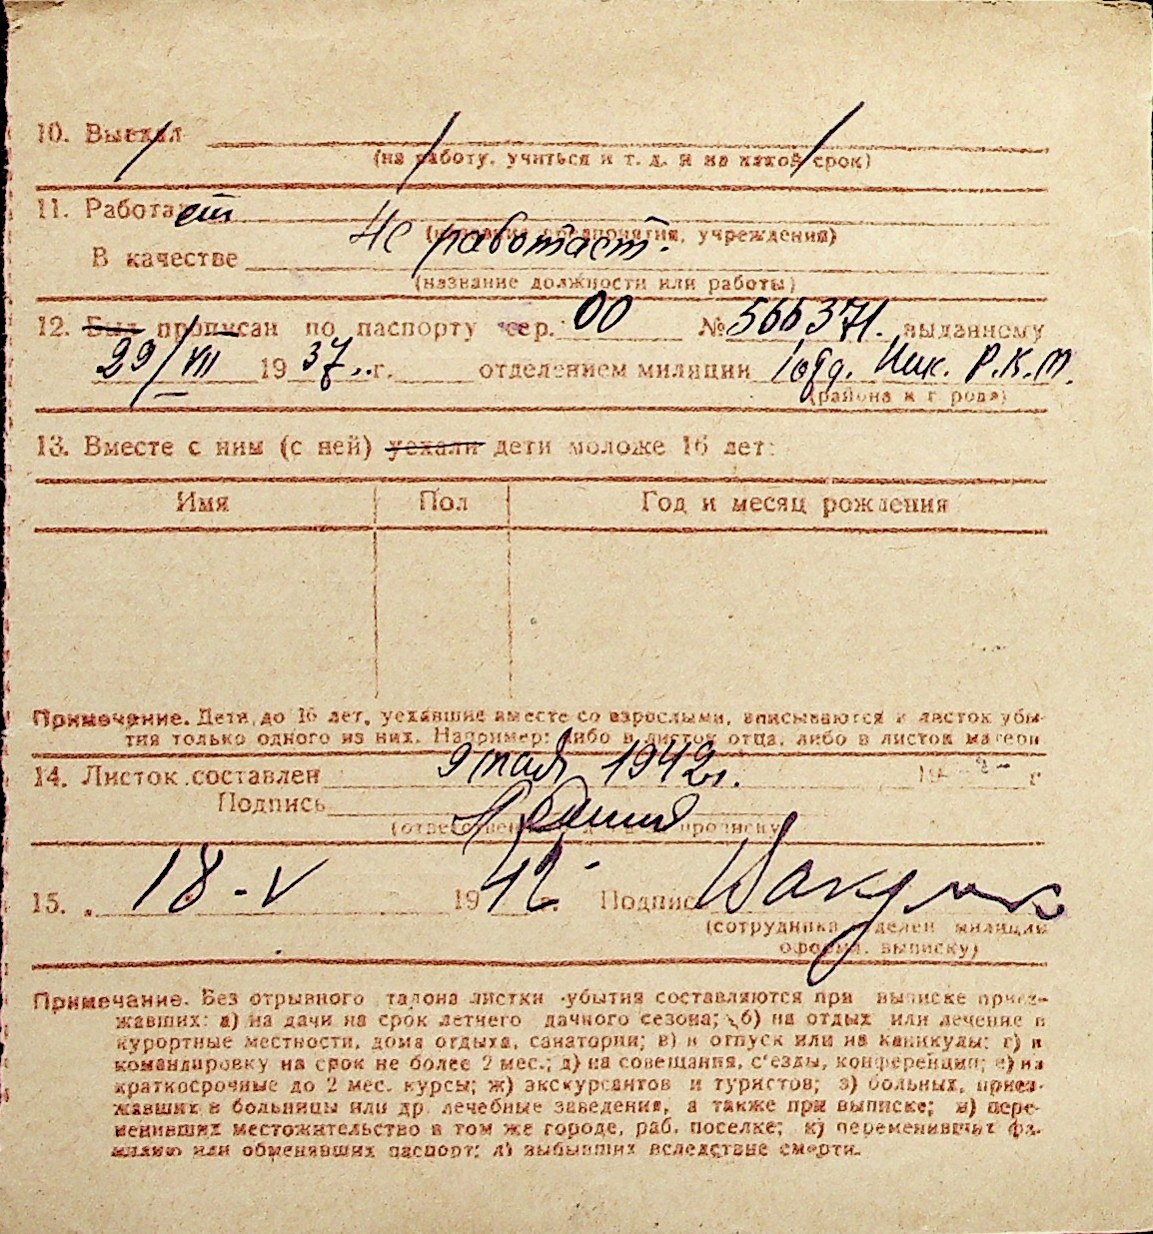 10. Выехал
(на работу, учиться и т. д. и на какой срок)
11. Работает
Не работает.
(название предприятия, учреждения)
В качестве
(название должности или работы)
12. Был прописан по паспорту сер. 00 № 566371. выданному
29/VII 1937 г. отделением милиции 1 отд. Ник. Р.К.М.
(района и города)
13. Вместе с ним (с ней) уехали дети моложе 16 лет:
Имя Пол Год и месяц рождения
Примечание. Дети до 16 лет, уехавшие вместе со взрослыми, вписываются в листок убы-
тия только одного из них. Например: либо в листок отца, либо в листок матери
14. Листок составлен 9 мая 1942 г. 19 г
Подпись
(ответственного за прописку)
15. 18-V 1942 г. Подпись
(сотрудника отделен милиции
оформ. выписку)
Примечание. Без отрывного талона листки убытия составляются при выписке приез-
жавших: а) на дачи на срок летнего дачного сезона; б) на отдых или лечение в
курортные местности, дома отдыха, санатории; в) в отпуск или на каникулы; г) в
командировку на срок не более 2 мес.; д) на совещания, с'езды, конференции; е) на
краткосрочные до 2 мес. курсы; ж) экскурсантов и туристов; з) больных, приез-
жавших в больницы или др. лечебные заведения, а также при выписке; и) пере-
менивших местожительство в том же городе, раб. поселке; к) переменивших фа-
милию или обменявших паспорт; л) выбывших вследствие смерти.